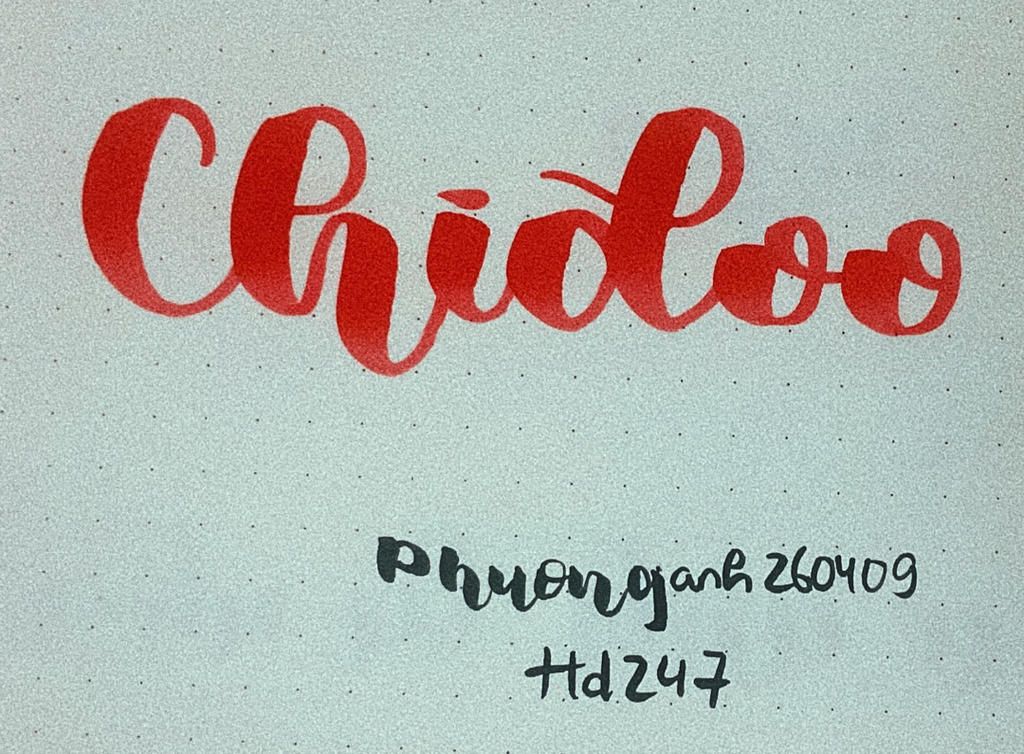 Chidoo
Phuonganh260409
Hd247